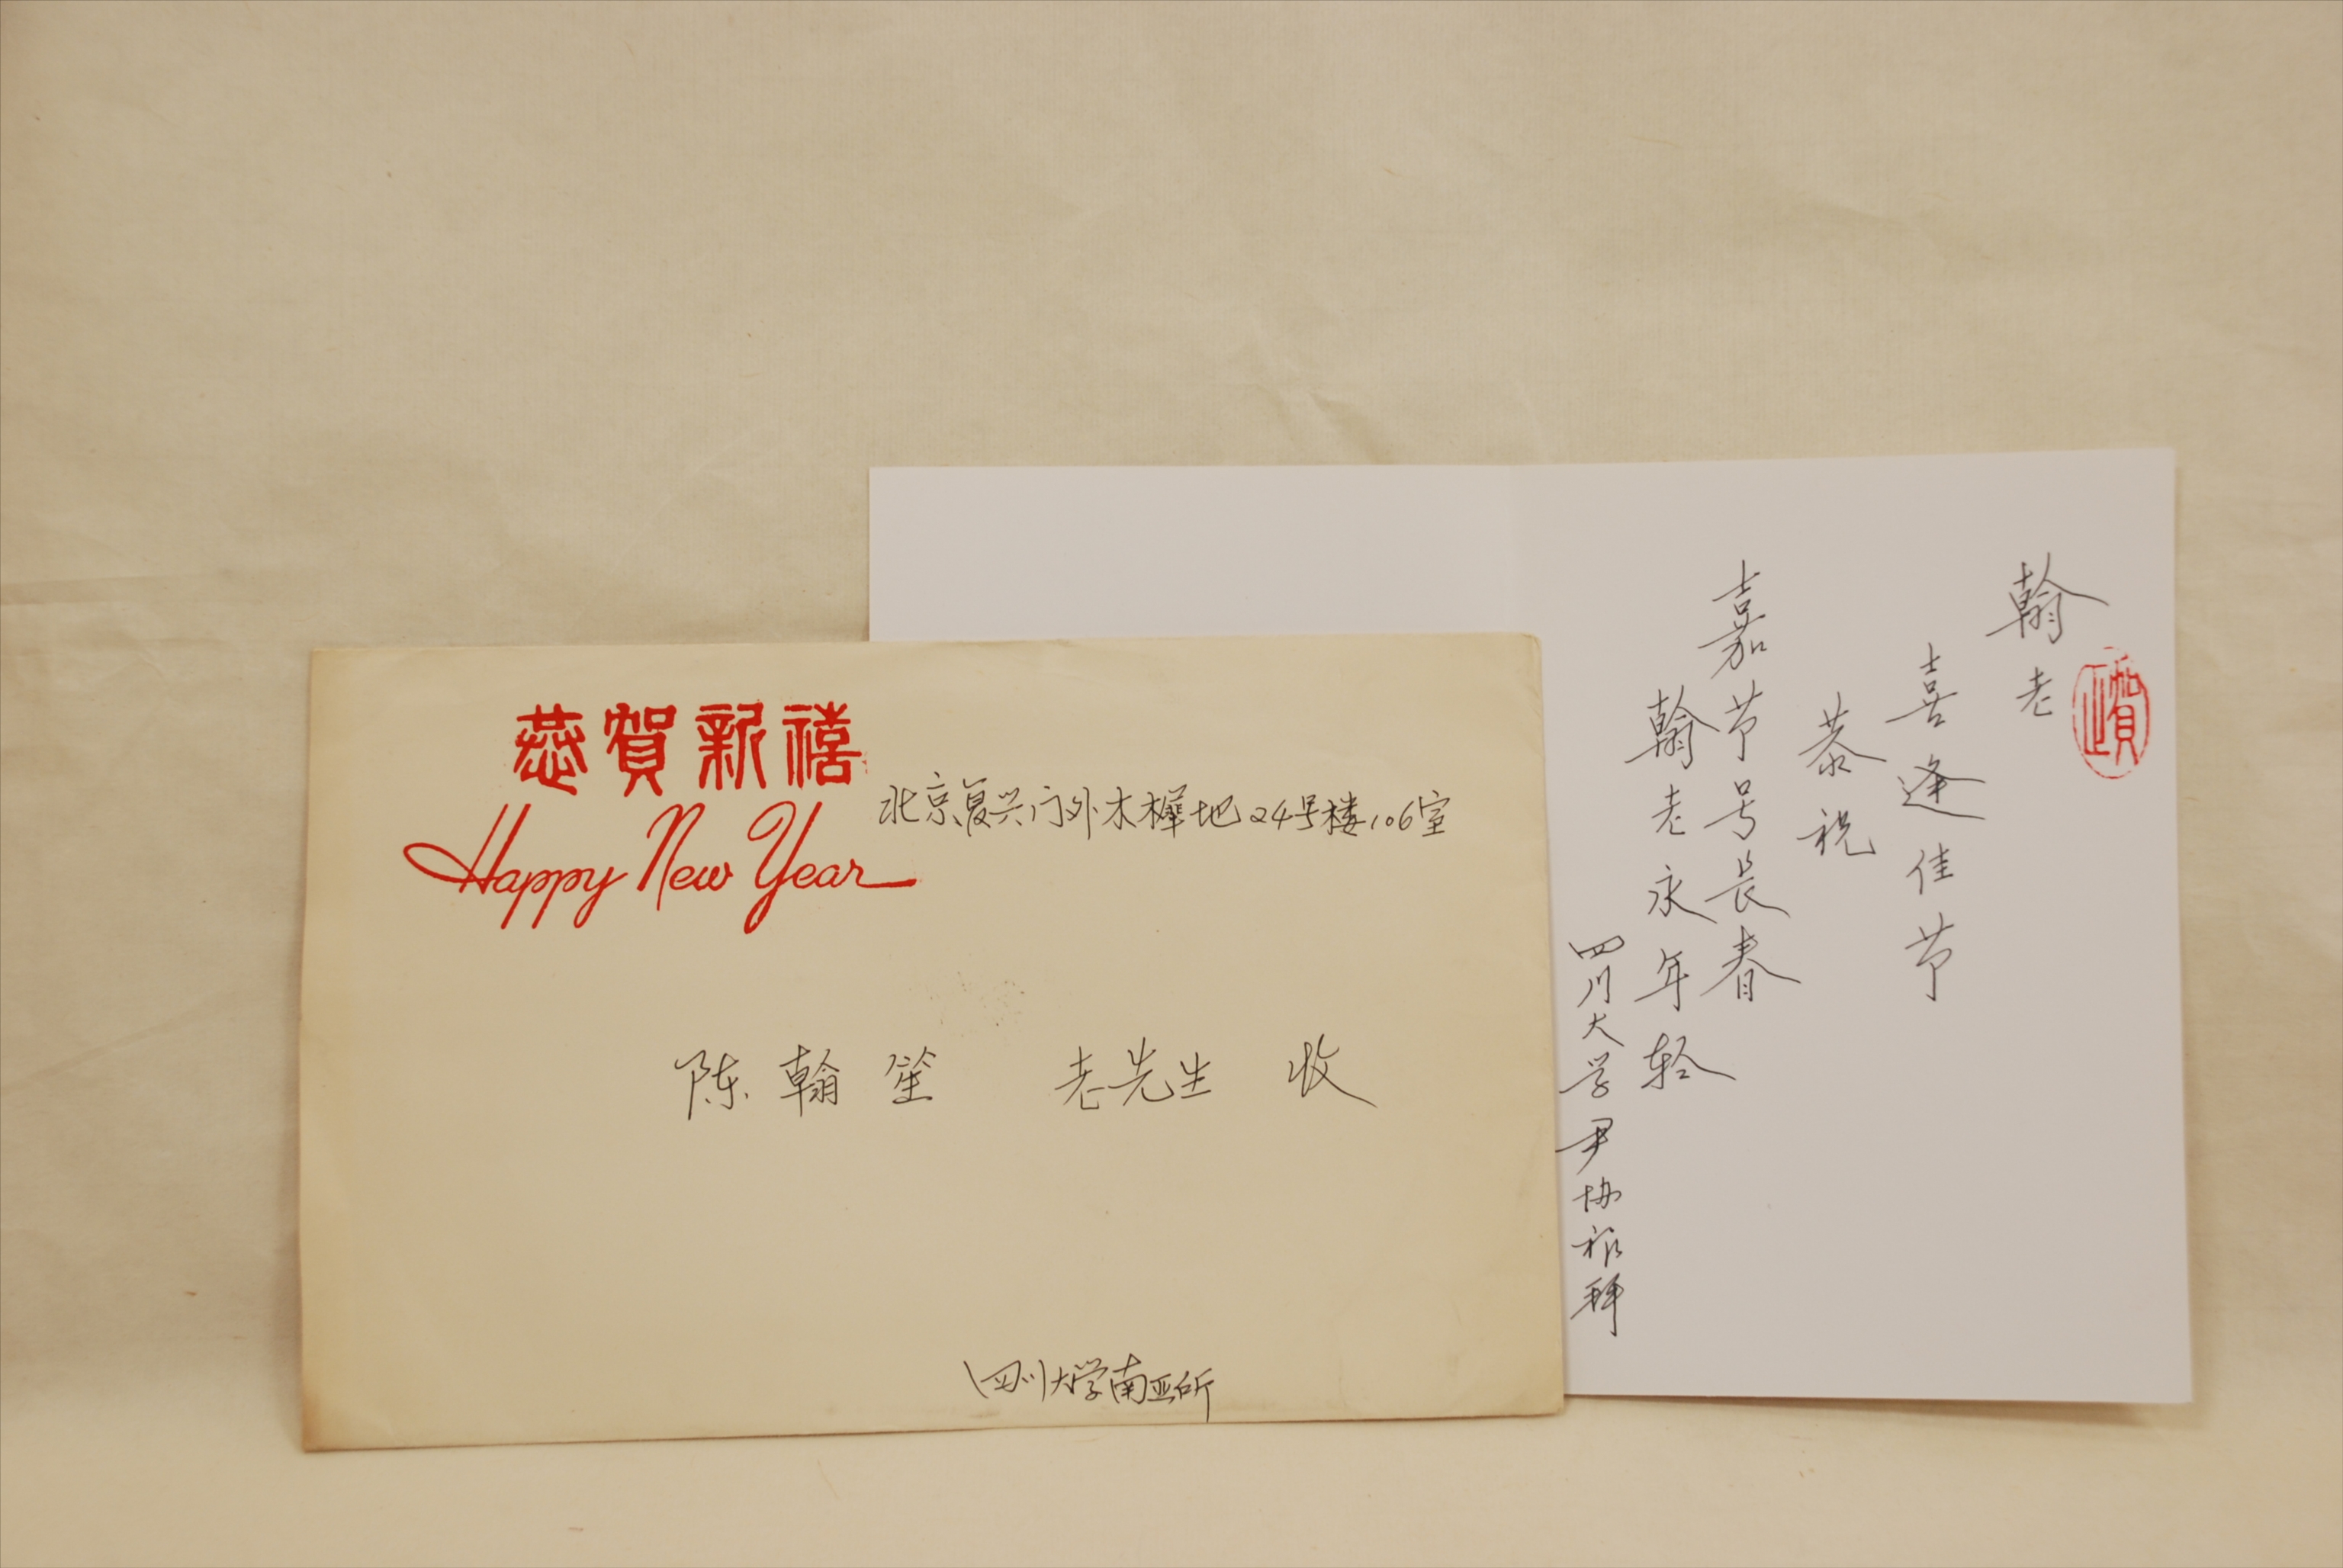 恭賀新禧
Happy New Year
北京复兴门外木樨地24号楼106室
陈翰笙 老先生 收
四川大学南亚所
翰老
喜逢佳节
恭祝
嘉节号长春
翰老永年轻
四川大学尹协